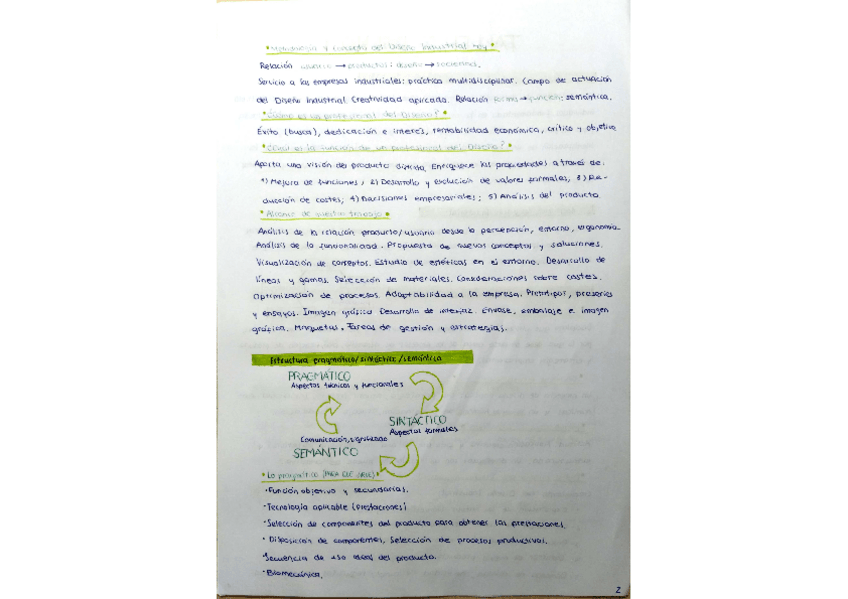 • Metodología y concepto del Diseño Industrial hoy •
Relación usuario → productos; diseño → sociedad.
Servicio a las empresas industriales: práctica multidisciplinar. Campo de actuación
del Diseño Industrial. Creatividad aplicada. Relación forma → función: semántica.
• ¿Cómo es un profesional del Diseño? •
Éxito (busca), dedicación e interés, rentabilidad económica, crítico y objetivo.
• ¿Cuál es la función de un profesional del Diseño? •
Aporta una visión del producto distinta. Enriquece las propiedades a través de:
1) Mejora de funciones; 2) Desarrollo y evolución de valores formales; 3) Re-
ducción de costes; 4) Decisiones empresariales; 5) Análisis del producto.
• Alcance de nuestro trabajo •
Análisis de la relación producto/usuario desde la percepción, entorno, ergonomía.
Análisis de la funcionalidad. Propuesta de nuevos conceptos y soluciones.
Visualización de conceptos. Estudio de estéticas en el entorno. Desarrollo de
líneas y gamas. Selección de materiales. Consideraciones sobre costes.
Optimización de procesos. Adaptabilidad a la empresa. Prototipos, preseries
y ensayos. Imagen gráfica. Desarrollo de interfaz. Envase, embalaje e imagen
gráfica. Maquetas. Tareas de gestión y estrategias.
Estructura pragmático/sintáctico/semántico
PRAGMÁTICO
Aspectos técnicos y funcionales
SINTÁCTICO
Aspectos formales
Comunicación, significado
SEMÁNTICO
• Lo pragmático (PARA QUÉ SIRVE) •
• Función objetivo y secundarias.
• Tecnología aplicable (prestaciones)
• Selección de componentes del producto para obtener las prestaciones.
• Disposición de componentes. Selección de procesos productivos.
• Secuencia de uso ideal del producto.
• Biomecánica.
2